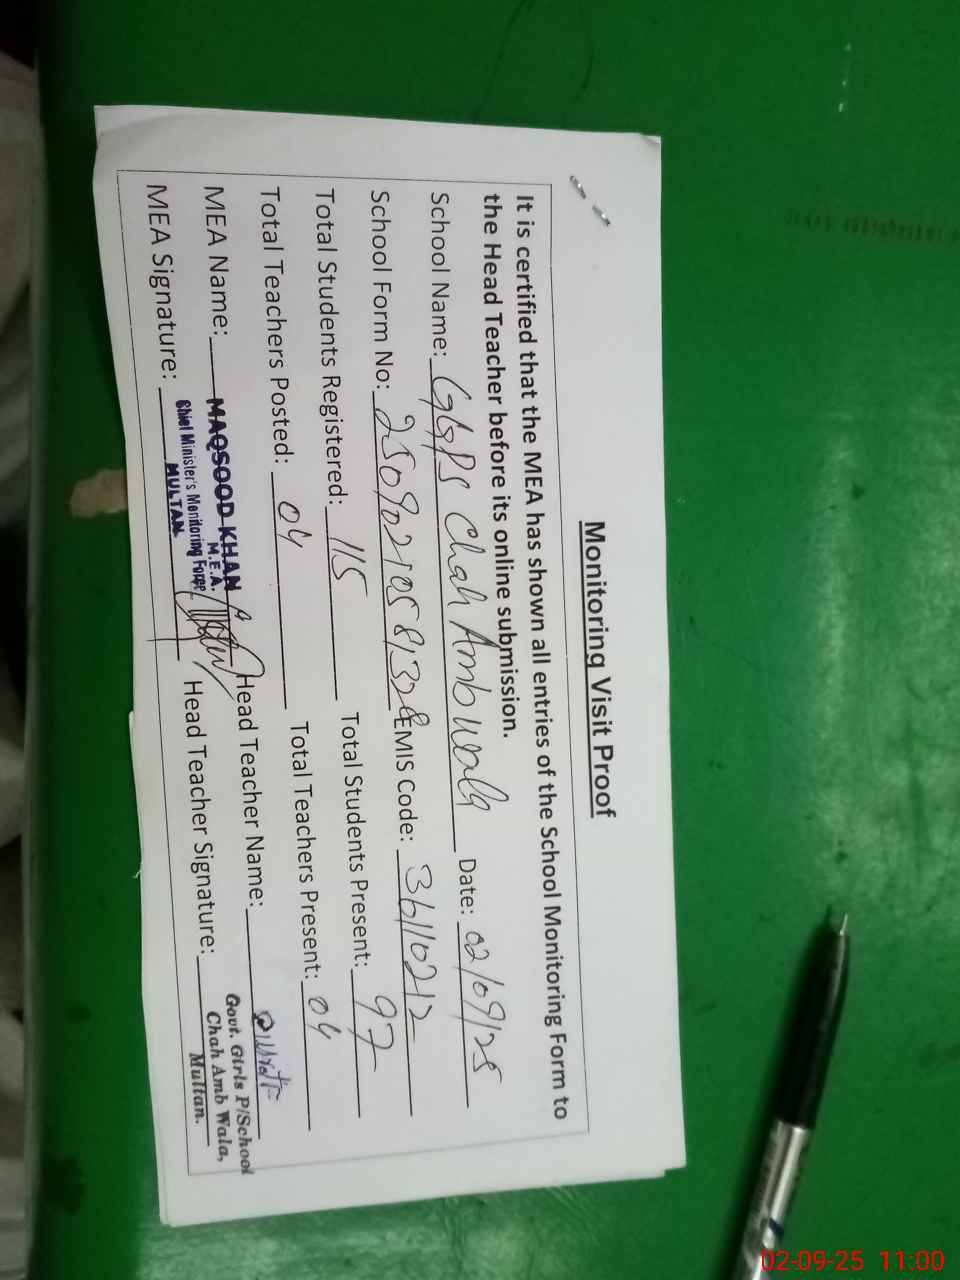 Monitoring Visit Proof
It is certified that the MEA has shown all entries of the School Monitoring Form to
the Head Teacher before its online submission.
School Name: GGPS Chah Amb Wala Date: 02/09/25
School Form No: EMIS Code: 36110212
Total Students Registered: 115 Total Students Present: 97
Total Teachers Posted: 04 Total Teachers Present: 04
MEA Name: MAQSOOD KHAN Head Teacher Name:
M.E.A.
MEA Signature: Chief Minister's Monitoring Force Head Teacher Signature:
MULTAN
Govt. Girls P/School
Chah Amb Wala,
Multan.
02-09-25 11:00